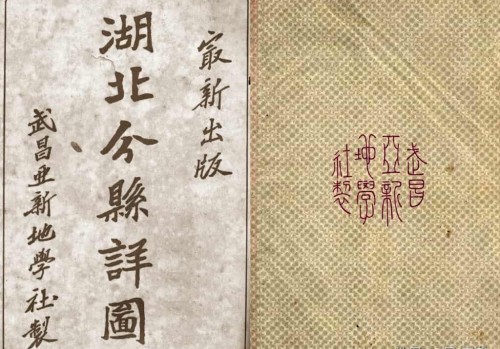 最新出版
湖北分縣詳圖
武昌亚新地學社製
武昌
亞新
地學
社製